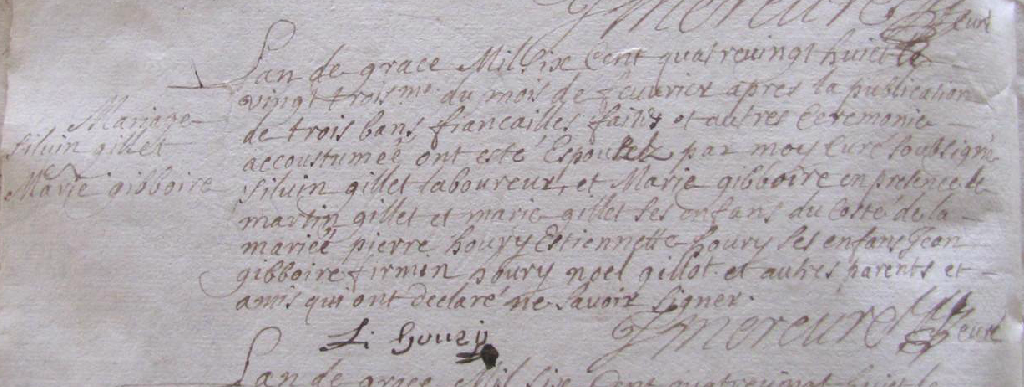 Mercure Curé
Lan de grace Mil Six Cent quatrevingt huict le
vingt trois.me du mois de feuvrier apres la publication
de trois bans fiancailles faites et autres Ceremonie
accoustumeé ont esté Espousez par moy Curé soubsigné
silvin gillet laboureur, et Marie gibboire en presence de
martin gillet et marie gillet ses enfans du Costé de la
marieé pierre houry Estiennette houry ses enfans Jean
gibboire firmin houry noel gillot et autres parents et
amis qui ont declaré ne savoir signer.
Mariage
silvin gillet
Marie gibboire
Mercure Curé
houry
Lan de grace Mil Six Cent quatrevingt huict